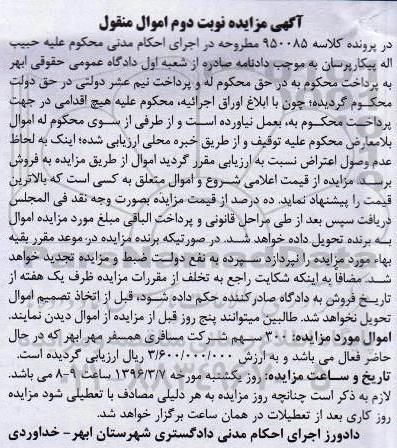 آگهی مزایده نوبت دوم اموال منقول
در پرونده کلاسه ۹۵۰۰۸۵ مطروحه در اجرای احکام مدنی محکوم علیه حبیب
اله پیکارپرسان به موجب دادنامه صادره از شعبه اول دادگاه عمومی حقوقی ابهر
به پرداخت محکوم به در حق محکوم له و پرداخت نیم عشر دولتی در حق دولت
محکوم گردیده؛ چون با ابلاغ اوراق اجرائیه، محکوم علیه هیچ اقدامی در جهت
پرداخت محکوم به، بعمل نیاورده است و از طرفی از سوی محکوم له اموال
بلامعارض محکوم علیه توقیف و از طریق خبره محلی ارزیابی شده؛ اینک به لحاظ
عدم وصول اعتراض نسبت به ارزیابی مقرر گردید اموال از طریق مزایده به فروش
برسد. مزایده از قیمت اعلامی شروع و اموال متعلق به کسی است که بالاترین
قیمت را پیشنهاد نماید. ده درصد از قیمت مزایده بصورت وجه نقد فی المجلس
دریافت سپس بعد از طی مراحل قانونی و پرداخت الباقی مبلغ مورد مزایده اموال
به برنده تحویل داده خواهد شد. در صورتیکه برنده مزایده در موعد مقرر بقیه
بهاء مورد مزایده را نپردازد سپرده به نفع دولت ضبط و مزایده تجدید خواهد
شد. مضافاً به اینکه شکایت راجع به تخلف از مقررات مزایده ظرف یک هفته از
تاریخ فروش به دادگاه صادرکننده حکم داده شود، قبل از اتخاذ تصمیم اموال
تحویل نخواهد شد. طالبین میتوانند پنج روز قبل از مزایده از اموال دیدن نمایند.
اموال مورد مزایده: ۳۰۰ سهم شرکت مسافری همسفر مهر ابهر که در حال
حاضر فعال می باشد و به ارزش ۳/۶۰۰/۰۰۰/۰۰۰ ریال ارزیابی گردیده است.
تاریخ و ساعت مزایده: روز یکشنبه مورخه ۱۳۹۶/۳/۷ ساعت ۹-۸ می باشد.
لازم به ذکر است چنانچه روز مزایده به هر دلیلی مصادف با تعطیلی شود مزایده
روز کاری بعد از تعطیلات در همان ساعت برگزار خواهد شد.
دادورز اجرای احکام مدنی دادگستری شهرستان ابهر- خداوردی